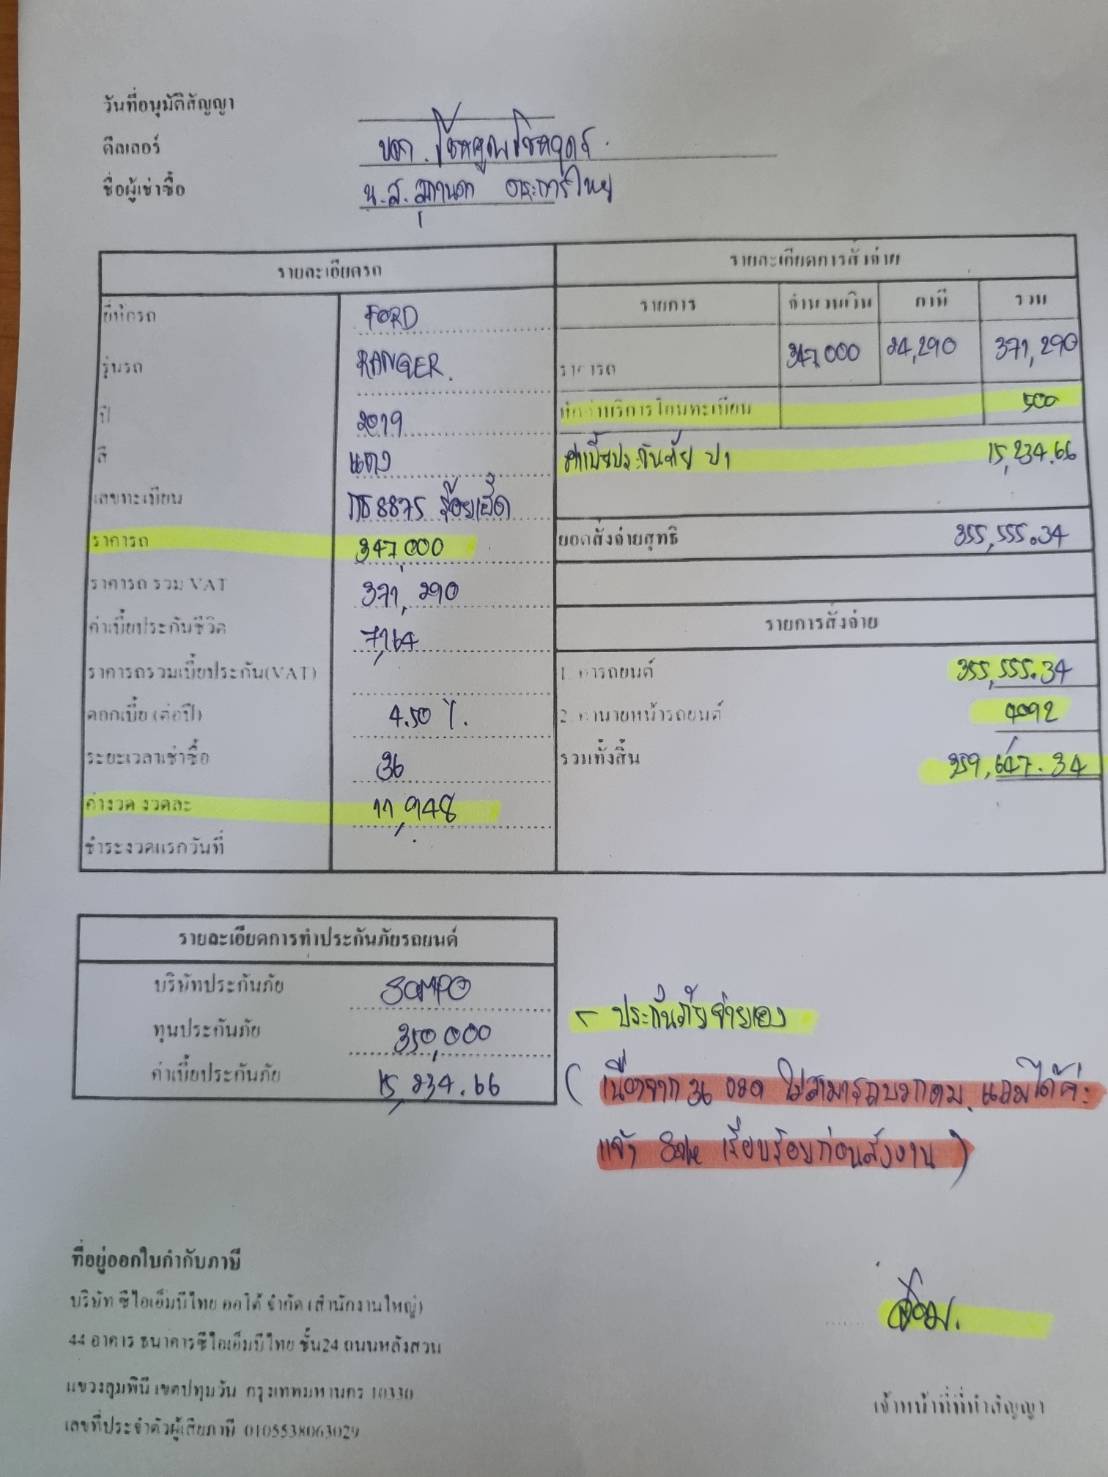 วันที่อนุมัติสัญญา
ดีลเลอร์ หจก. โชคคูณโชคอุดร
ชื่อผู้เช่าซื้อ น.ส.
รายละเอียดรถ
ยี่ห้อรถ FORD
รุ่นรถ RANGER.
ปี 2019
สี แดง
เลขทะเบียน 8875 ร้อยเอ็ด
ราคารถ 347,000
ราคารถ รวม VAT 371,290
ค่าเบี้ยประกันชีวิต 7,164
ราคารถรวมเบี้ยประกัน(VAT)
ดอกเบี้ย (ต่อปี) 4.50 %.
ระยะเวลาเช่าซื้อ 36
ค่างวด งวดละ 11,948
ชำระงวดแรกวันที่
รายละเอียดการสั่งจ่าย
รายการ จำนวนเงิน ภาษี รวม
ราคารถ 347,000 24,290 371,290
หักค่าบริการโอนทะเบียน 500
ค่าเบี้ยประกันภัย ป1 15,234.66
ยอดสั่งจ่ายสุทธิ 355,555.34
รายการสั่งจ่าย
1. ค่ารถยนต์ 355,555.34
2. ค่านายหน้ารถยนต์ 4092
รวมทั้งสิ้น 359,647.34
รายละเอียดการทำประกันภัยรถยนต์
บริษัทประกันภัย SOMPO
ทุนประกันภัย 350,000
ค่าเบี้ยประกันภัย 15,234.66
- ประกันภัยจ่ายเอง
( เนื่องจาก 36 งวด ไม่สามารถบวกคบ. แถมได้ค่ะ
แจ้ง Sale เรียบร้อยก่อนส่งงาน )
ที่อยู่ออกใบกำกับภาษี
บริษัท ซีไอเอ็มบีไทย ออโต้ จำกัด (สำนักงานใหญ่)
44 อาคาร ธนาคารซีไอเอ็มบีไทย ชั้น24 ถนนหลังสวน
แขวงลุมพินี เขตปทุมวัน กรุงเทพมหานคร 10330
เลขที่ประจำตัวผู้เสียภาษี 0105538063029
เจ้าหน้าที่ที่ทำสัญญา